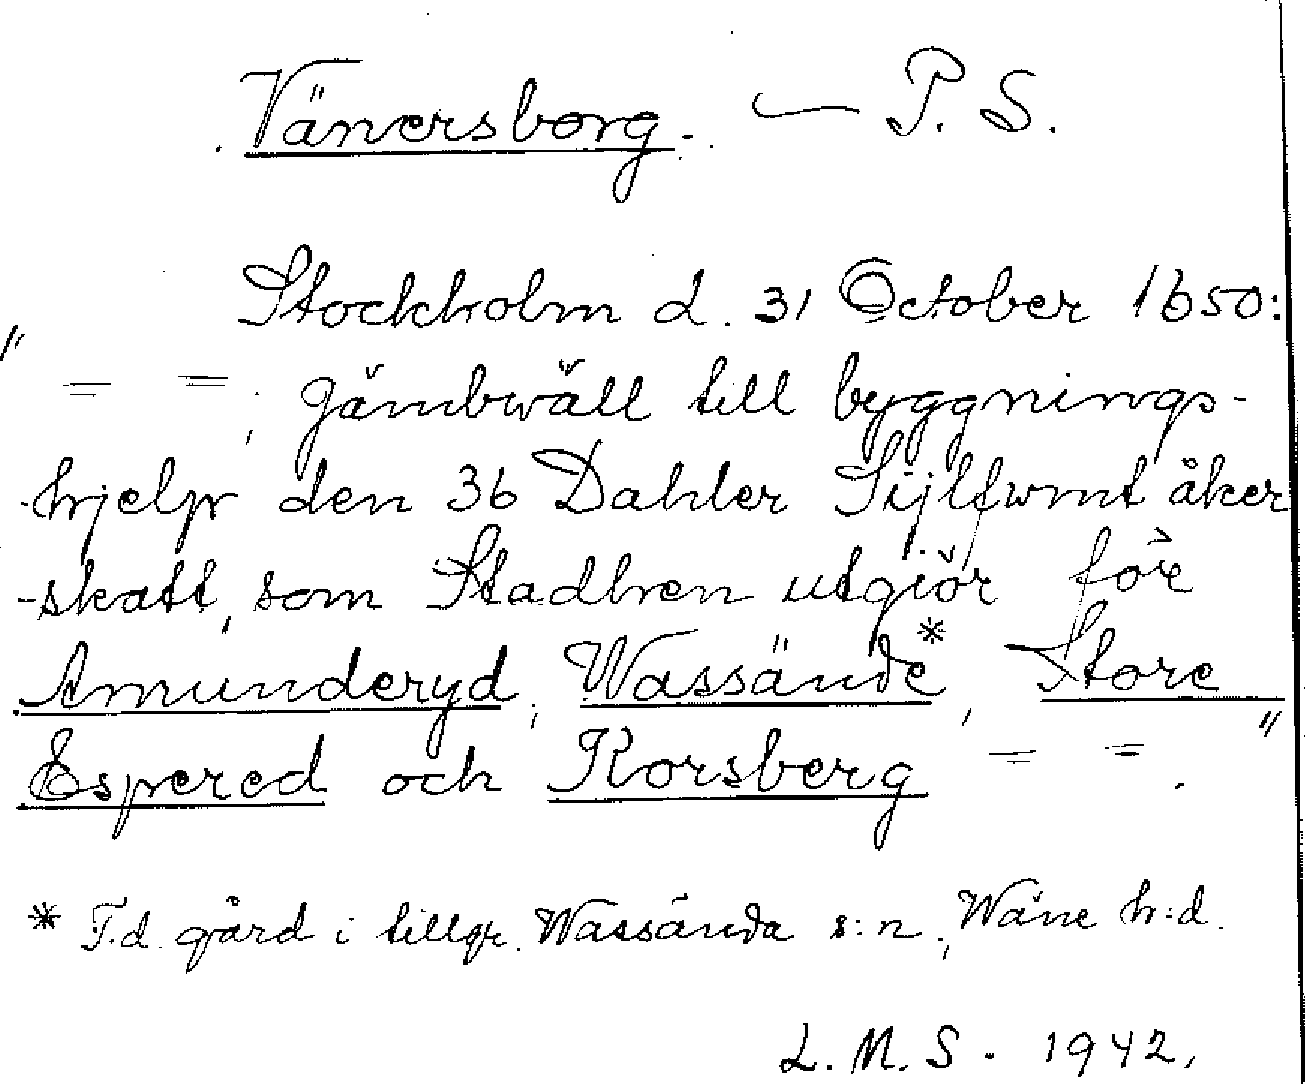 Vänersborg. — P. S.
Stockholm d. 31 October 1650:
" = =, jämbwäll till byggnings-
-hjelp den 36 Dahler Sijlfwmt åker
-skatt, som Stadhen utgiör för
Amunderyd, Wassände*, Store
Espered och Korsberg = = . "
* F.d. gård i tillgr. Wassända s:n, Wäne h:d.
L. M. S. 1942.